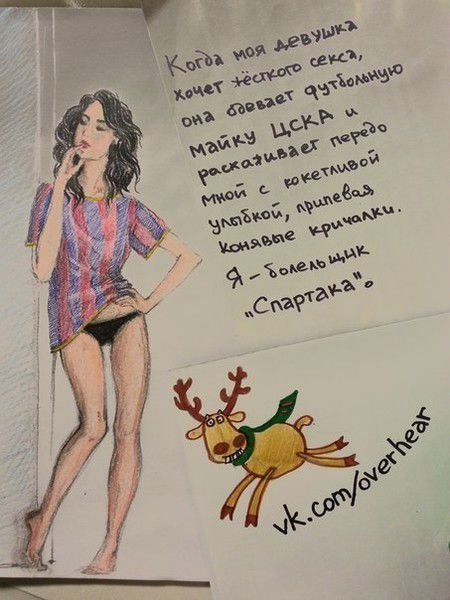 Когда моя девушка
хочет жёсткого секса,
она одевает футбольную
майку ЦСКА и
расхаживает передо
мной с кокетливой
улыбкой, припевая
конявые кричалки.
Я - болельщик
"Спартака".
vk.com/overhear